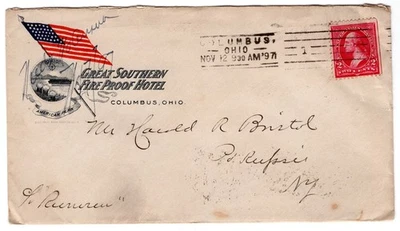 GREAT SOUTHERN
FIRE PROOF HOTEL
COLUMBUS, OHIO.
COLUMBUS,
OHIO
NOV 12 9 30 AM '97
1
Mr Harold R Bristol
Po'Kupsie
NY